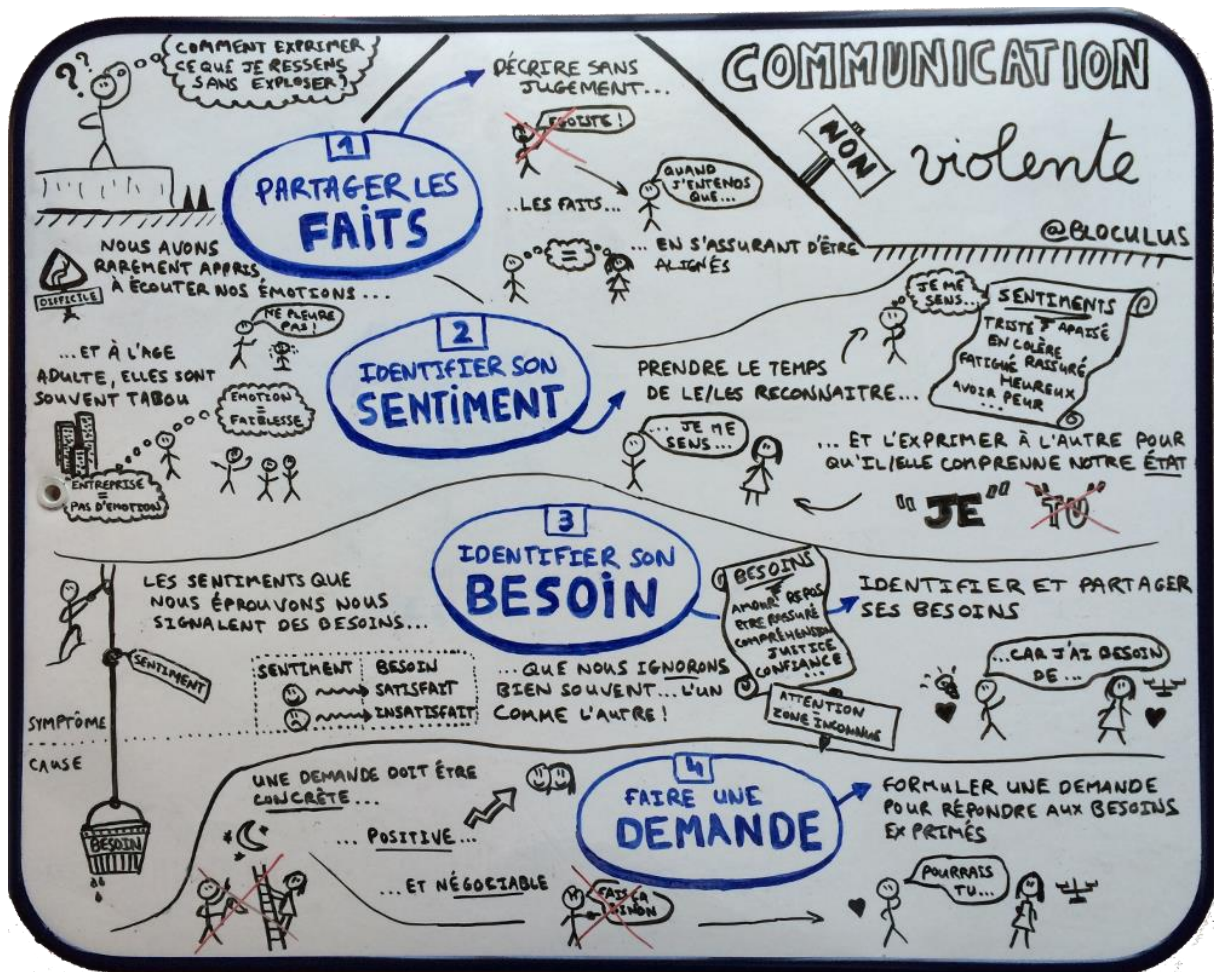 COMMUNICATION
NON
violente
@BLOCULUS
??
COMMENT EXPRIMER
CE QUE JE RESSENS
SANS EXPLOSER?
1
PARTAGER LES
FAITS
DÉCRIRE SANS
JUGEMENT...
EGOISTE !
...LES FAITS...
QUAND
J'ENTENDS
QUE...
=
... EN S'ASSURANT D'ÊTRE
ALIGNÉS
NOUS AVONS
RAREMENT APPRIS
À ÉCOUTER NOS ÉMOTIONS ...
DIFFICILE
NE PLEURE
PAS !
...ET À L'AGE
ADULTE, ELLES SONT
SOUVENT TABOU
EMOTION
=
FAIBLESSE
ENTREPRISE
=
PAS D'EMOTION
2
IDENTIFIER SON
SENTIMENT
PRENDRE LE TEMPS
DE LE/LES RECONNAITRE...
JE ME
SENS...
SENTIMENTS
TRISTE APAISÉ
EN COLÈRE
FATIGUÉ RASSURÉ
HEUREUX
AVOIR PEUR
...
... JE ME
SENS...
... ET L'EXPRIMER À L'AUTRE POUR
QU'IL/ELLE COMPRENNE NOTRE ÉTAT
"JE" "TU"
3
IDENTIFIER SON
BESOIN
LES SENTIMENTS QUE
NOUS ÉPROUVONS NOUS
SIGNALENT DES BESOINS...
SENTIMENT
SYMPTÔME
CAUSE
BESOIN
SENTIMENT BESOIN
SATISFAIT
INSATISFAIT
...QUE NOUS IGNORONS
BIEN SOUVENT... L'UN
COMME L'AUTRE !
BESOINS
AMOUR REPOS
ETRE RASSURÉ
COMPRÉHENSION
JUSTICE
CONFIANCE
...
ATTENTION
ZONE INCONNUE
IDENTIFIER ET PARTAGER
SES BESOINS
...CAR J'AI BESOIN
DE ...
4
FAIRE UNE
DEMANDE
UNE DEMANDE DOIT ÊTRE
CONCRÈTE ...
... POSITIVE ...
... ET NÉGOCIABLE
FAIS ÇA
SINON
FORMULER UNE DEMANDE
POUR RÉPONDRE AUX BESOINS
EXPRIMÉS
POURRAIS
TU...